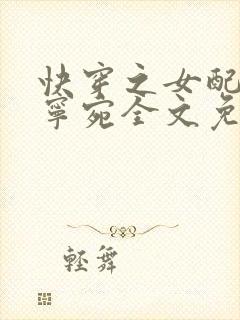 快穿之女配
寧宛全文免
輕舞